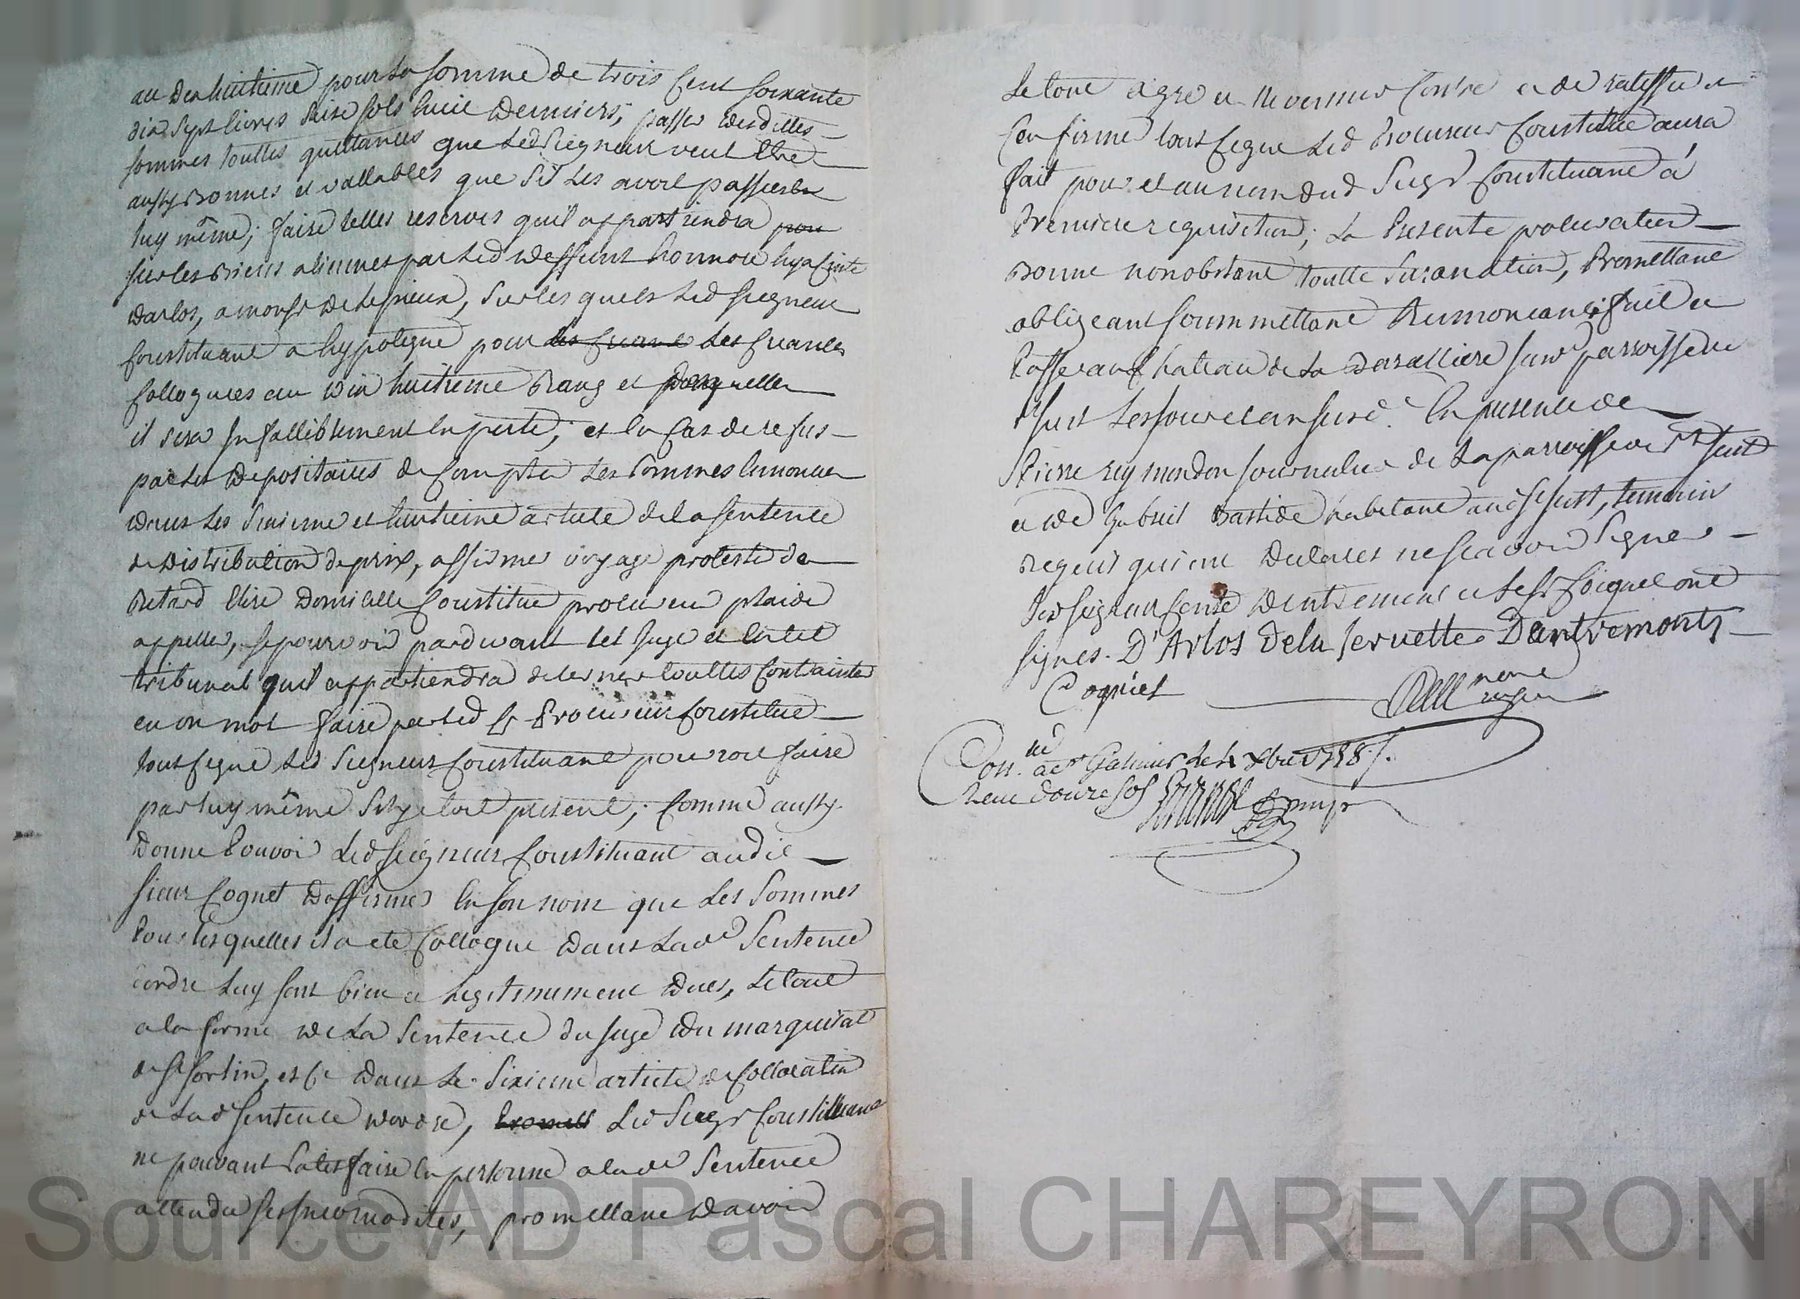 au dixhuitieme pour la somme de trois cent soixante
dix sept livres seize sols huit deniers; passer desdittes
sommes touttes quittances que led Seigneur veut etre
aussy bonnes et vallables que s'il les avoit passées
luy même; faire telles reserves qu'il appartiendra
sur les biens alienner par led deffunt honnoré hyacinte
darlos, a monsr de , sur lesquels led seigneur
constituant a hypoteque pour les creances
colloquees au dix huitieme rang et
il sera infalliblement en perte; et en cas de refus
par les depositaires de compter les sommes enoncees
dans les sixieme et huitieme article de la sentence
de distribution de prix, affirmer voyage protester de
retard elire domicille constitue procureur plaider
appeller, se pourvoir pardevant tel juge et en tel
tribunal qu'il appartiendra decerner touttes contraintes
en un mot faire par led sr Procureur constitué
tout ceque led Seigneur constituant pourroit faire
par luy même s'il y etoit present; comme aussy
donne Pouvoir led seigneur constituant audit
sieur Cognet d'affirmer en son nom que les sommes
pour lesquelles il a eté colloqué dans lade Sentence
dordre luy sont bien et legitimement dues, le tout
a la forme de la sentence du juge du marquisat
de St sorlin, et ce dans le sixieme article de collocation
de lad sentence dordre, led Seigr constituant
ne pouvant satisfaire en personne a lade sentence
attendu ses incomodités, promettant davoir
Le tout agré et ne venir contre et de ratiffier et
confirmé tout ceque led Procureur constitué aura
fait pour et au nom dud Seigr constituant à
Premiere requisition; La Presente procuration
bonne nonobstant toutte surannation, Promettant
obligeant soummettant Renoncant fait et
Passé au Chateau de la susde parroisse de
St Just les jour et an susd. En presence de
Pierre reymondon journalier de la parroisse de St Just
et de bastide habitant aud St Just, temoins
requis qui ont declarer ne scavoir signer
led seigneur dentremont et le sr Coignet ont
signes. D'Arlos dela servette Dentremonts
Cogniet
nore
Con. ac Galmier le 4 Xbre 1785.
Receu douze sols